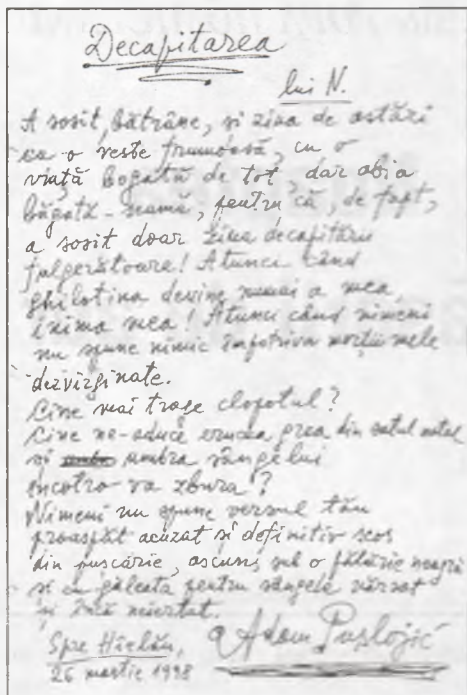 Decapitarea
lui N.
A sosit, bătrâne, și ziua de astăzi
ca o veste frumoasă, cu o
viață bogată de tot, dar abia
băgată-seamă, pentru că, de fapt,
a sosit doar ziua decapitării
fulgerătoare! Atunci când
ghilotina devine numai a mea,
inima mea! Atunci când nimeni
nu spune nimic împotriva morții mele
dezvirginate.
Cine mai trage clopotul?
Cine ne-aduce crucea grea din satul natal
și umbra sângelui
încotro va zbura?
Nimeni nu spune versul tău
proaspăt acuzat și definitiv scos
din pușcărie, ascuns sub o pălărie neagră
și cu găleata pentru sângele vărsat
și încă neiertat.
Spre Hîrlău,
26 martie 1998
Adam Puslojić